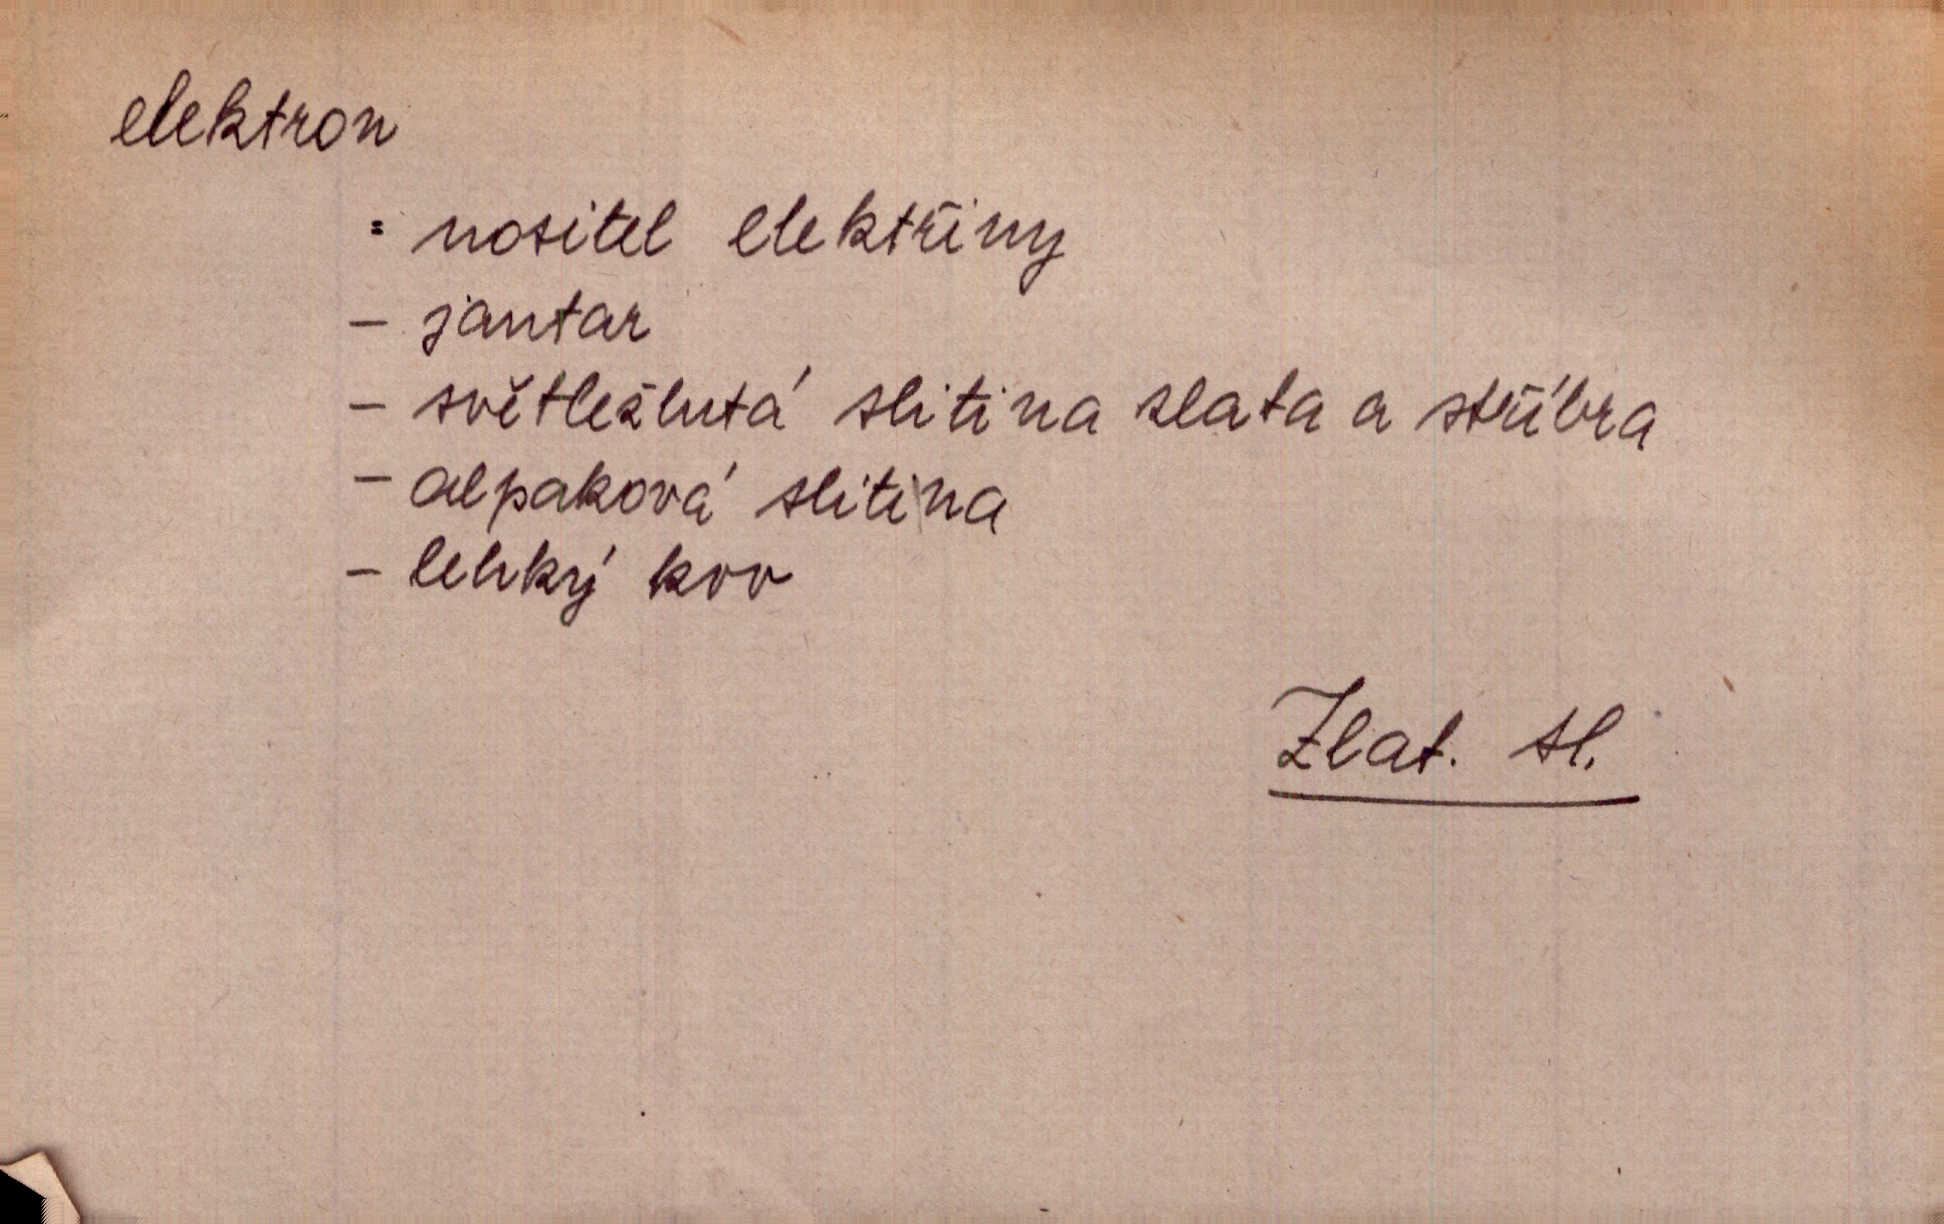 elektron
= nositel elektřiny
- jantar
- světležlutá slitina zlata a stříbra
- alpaková slitina
- lehký kov
Zlat. sl.